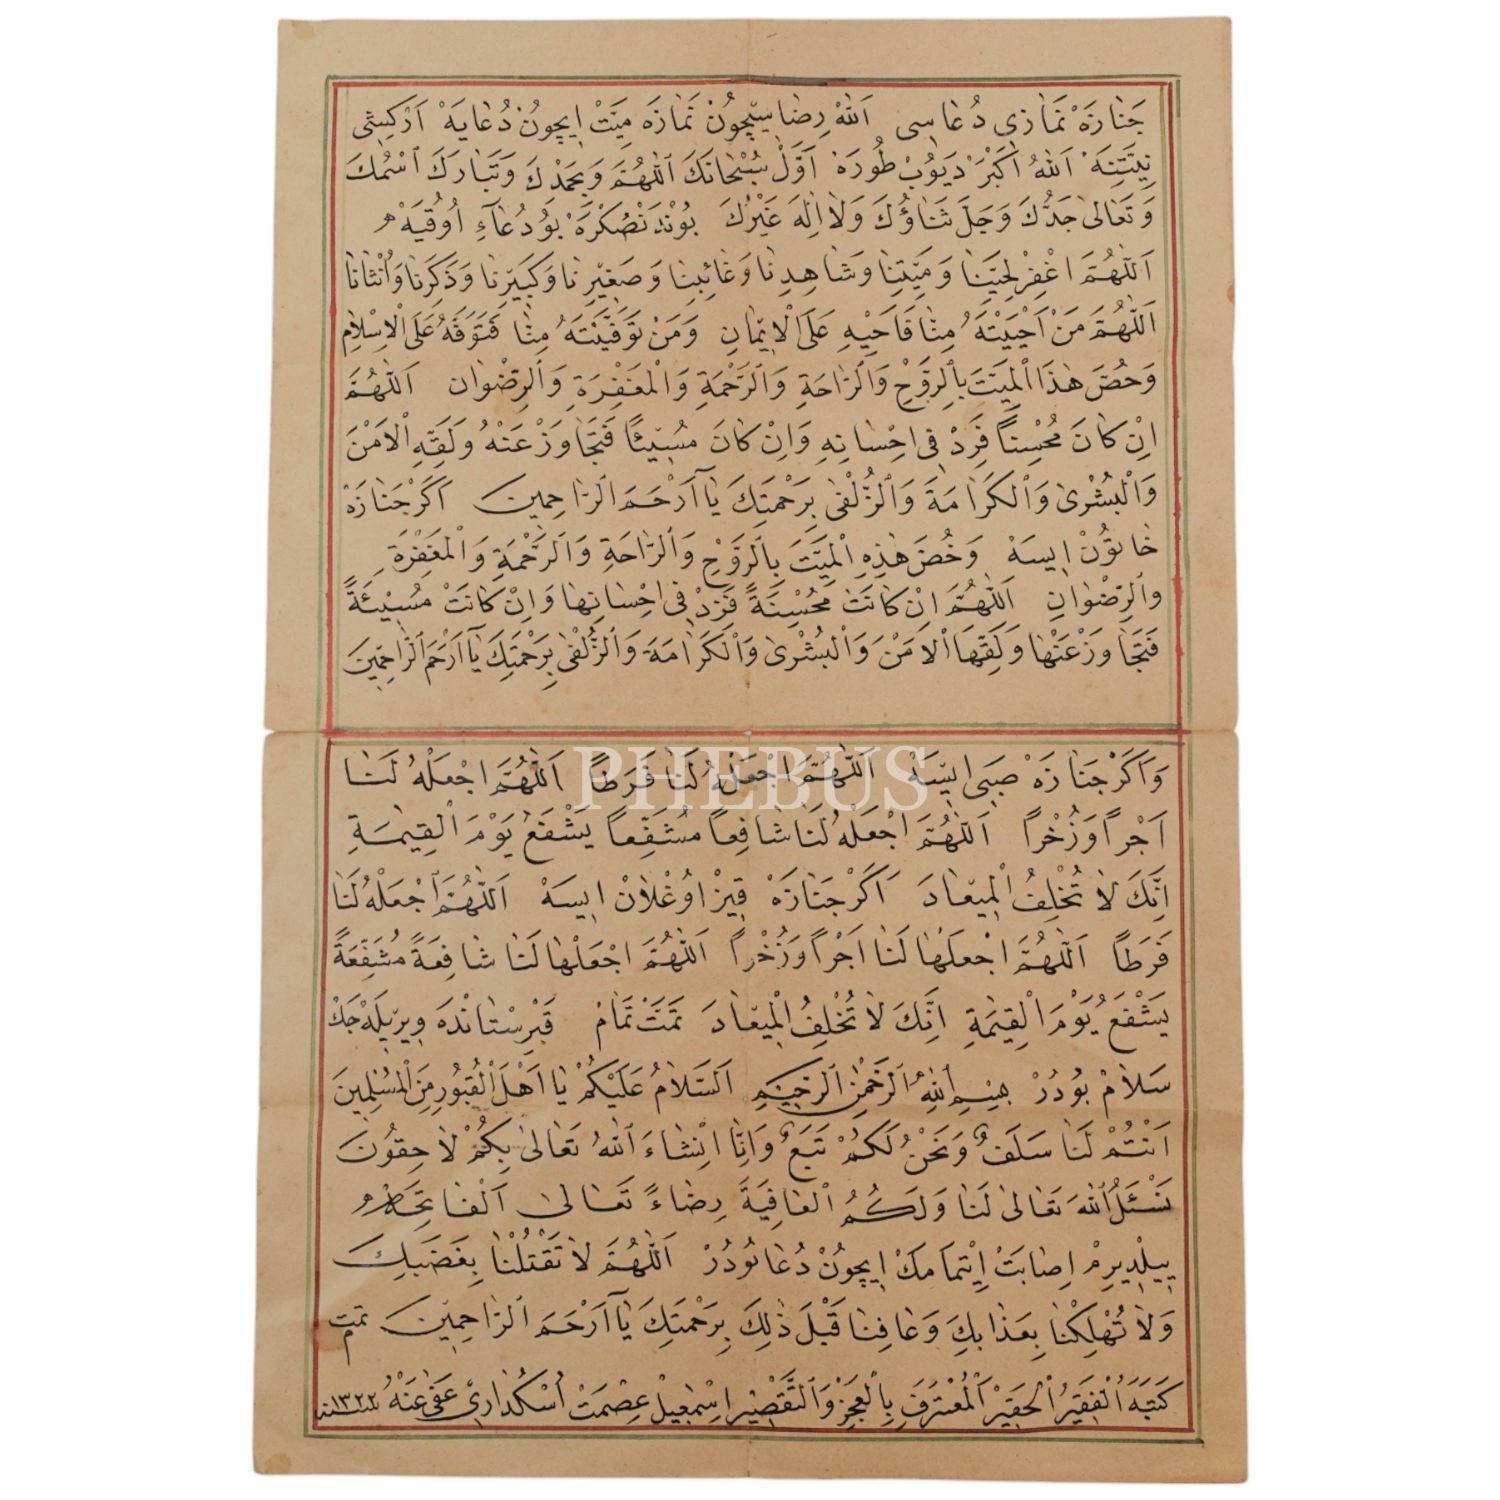 جَنَازَهْ نَمَازِى دُعَاسِى اَللّٰهْ رِضَاسِيچُونْ نَمَازَه مَيِّتْ اِيچُونْ دُعَايَهْ اَرْكِيشِى
نِيَّتِنَهْ اَللّٰهُ اَكْبَرْ دَيُوبْ طُورَهْ اَوَّلْ سُبْحَانَكَ اَللّٰهُمَّ وَبِحَمْدِكَ وَتَبَارَكَ اسْمُكَ
وَتَعَالىٰ جَدُّكَ وَجَلَّ ثَنَاؤُكَ وَلَا اِلٰهَ غَيْرُكَ بُونْدَنْصُكْرَهْ بُو دُعَاءِ اُوقُيَهْ
اَللّٰهُمَّ اغْفِرْ لِحَيِّنَا وَمَيِّتِنَا وَشَاهِدِنَا وَغَائِبِنَا وَصَغِيرِنَا وَكَبِيرِنَا وَذَكَرِنَا وَاُنْثَانَا
اَللّٰهُمَّ مَنْ اَحْيَيْتَهُ مِنَّا فَاَحْيِهِ عَلَى الْاِيمَانِ وَمَنْ تَوَفَّيْتَهُ مِنَّا فَتَوَفَّهُ عَلَى الْاِسْلَامِ
وَخُصَّ هٰذَا الْمَيِّتَ بِالرَّوْحِ وَالرَّاحَةِ وَالرَّحْمَةِ وَالْمَغْفِرَةِ وَالرِّضْوَانِ اَللّٰهُمَّ
اِنْ كَانَ مُحْسِنًا فَزِدْ فِى اِحْسَانِهِ وَاِنْ كَانَ مُسِيئًا فَتَجَاوَزْ عَنْهُ وَلَقِّهِ الْاَمْنَ
وَالْبُشْرىٰ وَالْكَرَامَةَ وَالزُّلْفىٰ بِرَحْمَتِكَ يَا اَرْحَمَ الرَّاحِمِينَ اَكَرْ جَنَازَهْ
خَاتُونْ اِيسَهْ وَخُصَّ هٰذِهِ الْمَيِّتَ بِالرَّوْحِ وَالرَّاحَةِ وَالرَّحْمَةِ وَالْمَغْفِرَةِ
وَالرِّضْوَانِ اَللّٰهُمَّ اِنْ كَانَتْ مُحْسِنَةً فَزِدْ فِى اِحْسَانِهَا وَاِنْ كَانَتْ مُسِيئَةً
فَتَجَاوَزْ عَنْهَا وَلَقِّهَا الْاَمْنَ وَالْبُشْرىٰ وَالْكَرَامَةَ وَالزُّلْفىٰ بِرَحْمَتِكَ يَا اَرْحَمَ الرَّاحِمِينَ
وَاَكَرْ جَنَازَهْ صَبِى اِيسَهْ اَللّٰهُمَّ اجْعَلْهُ لَنَا فَرَطًا اَللّٰهُمَّ اجْعَلْهُ لَنَا
PHEBUS
اَجْرًا وَذُخْرًا اَللّٰهُمَّ اجْعَلْهُ لَنَا شَافِعًا مُشَفَّعًا يَشْفَعُ يَوْمَ الْقِيٰمَةِ
اِنَّكَ لَا تُخْلِفُ الْمِيعَادَ اَكَرْ جَنَازَهْ قِيزْ اوُغْلَانْ اِيسَهْ اَللّٰهُمَّ اجْعَلْهُ لَنَا
فَرَطًا اَللّٰهُمَّ اجْعَلْهَا لَنَا اَجْرًا وَذُخْرًا اَللّٰهُمَّ اجْعَلْهَا لَنَا شَافِعَةً مُشَفَّعَةً
يَشْفَعُ يَوْمَ الْقِيٰمَةِ اِنَّكَ لَا تُخْلِفُ الْمِيعَادَ تَمَّتْ تَمَامْ قَبْرِسْتَانْدَه وِيرِيلَهْ جَكْ
سَلَامْ بُودُرْ بِسْمِ اللّٰهِ الرَّحْمٰنِ الرَّحِيمِ اَلسَّلَامُ عَلَيْكُمْ يَا اَهْلَ الْقُبُورِ مِنَ الْمُسْلِمِينَ
اَنْتُمْ لَنَا سَلَفٌ وَنَحْنُ لَكُمْ تَبَعٌ وَاِنَّا اِنْشَاءَ اللّٰهُ تَعَالىٰ بِكُمْ لَاحِقُونَ
نَسْئَلُ اللّٰهَ تَعَالىٰ لَنَا وَلَكُمُ الْعَافِيَةَ رِضَاءً تَعَالىٰ اَلْفَاتِحَه
يِيلْدِيرِمْ اِصَابَتْ اِيْتمَامَكْ اِيچُونْ دُعَا بُودُرْ اَللّٰهُمَّ لَا تَقْتُلْنَا بِغَضَبِكَ
وَلَا تُهْلِكْنَا بِعَذَابِكَ وَعَافِنَا قَبْلَ ذٰلِكَ بِرَحْمَتِكَ يَا اَرْحَمَ الرَّاحِمِينَ تمت
كَتَبَهُ الْفَقِيرُ الْحَقِيرُ الْمُعْتَرِفُ بِالْعَجْزِ وَالتَّقْصِيرِ اِسْمٰعِيلْ عِصْمَتْ اُسْكُدَارِى عَفىٰ عَنْهُ سنه ١٣٢٢